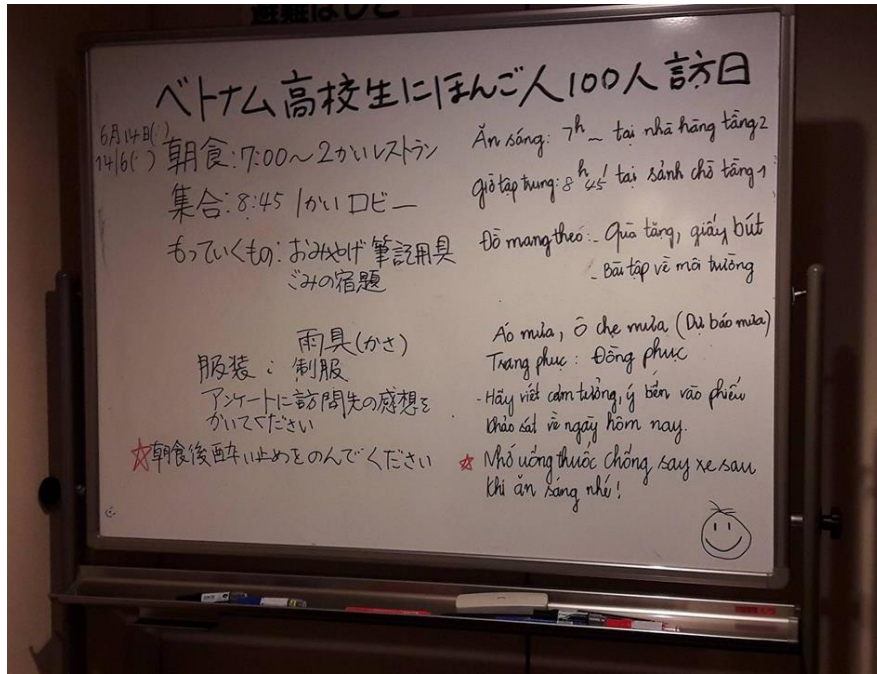 避難はしご
ベトナム高校生にほんご人100人訪日
6月14日(:)
14/6(:)
朝食:7:00〜2かいレストラン
集合:8:45 1かいロビー
もっていくもの:おみやげ 筆記用具
ごみの宿題
雨具(かさ)
服装: 制服
アンケートに訪問先の感想を
かいてください
☆朝食後酔い止めをのんでください
Ăn sáng: 7h ~ tại nhà hàng tầng 2
Giờ tập trung: 8h45' tại sảnh chờ tầng 1
Đồ mang theo: - Quà tặng, giấy bút
- Bài tập về môi trường
Áo mưa, ô che mưa (Dự báo mưa)
Trang phục: Đồng phục
- Hãy viết cảm tưởng, ý kiến vào phiếu
khảo sát về ngày hôm nay.
☆ Nhớ uống thuốc chống say xe sau
khi ăn sáng nhé!